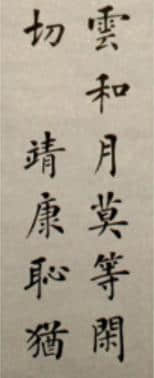 雲和月莫等閑
切 靖康恥猶